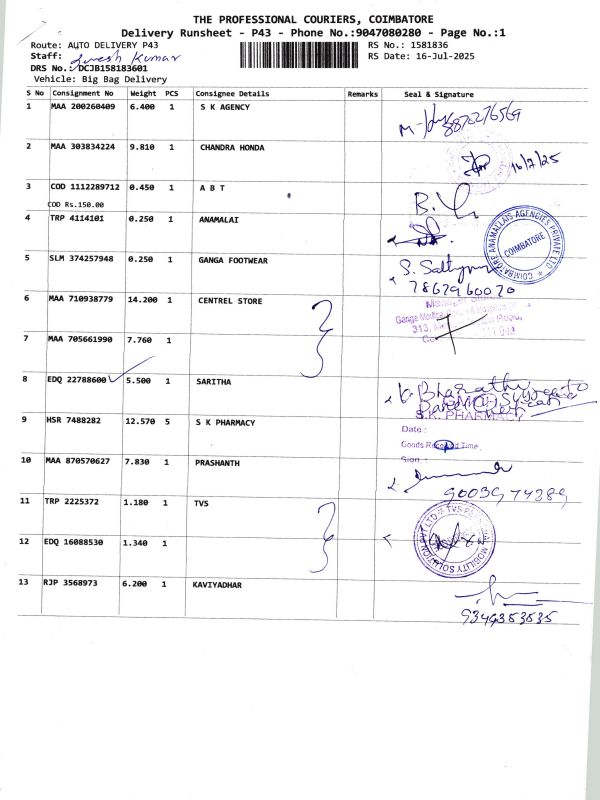 THE PROFESSIONAL COURIERS, COIMBATORE
Delivery Runsheet - P43 - Phone No.:9047080280 - Page No.:1
Route: AUTO DELIVERY P43
RS No.: 1581836
Staff: Suresh Kumar
RS Date: 16-Jul-2025
DRS No.: DCJB158183601
Vehicle: Big Bag Delivery
S No Consignment No Weight PCS Consignee Details Remarks Seal & Signature
1 MAA 200260409 6.400 1 S K AGENCY
8870276569
2 MAA 303834224 9.810 1 CHANDRA HONDA
16/7/25
3 COD 1112289712 0.450 1 A B T
COD Rs.150.00
4 TRP 4114101 0.250 1 ANAMALAI
COIMBATORE ANAMALLAIS AGENCIES PRIVATE LTD
COIMBATORE
5 SLM 374257948 0.250 1 GANGA FOOTWEAR
7867960070
6 MAA 710938779 14.200 1 CENTREL STORE
7 MAA 705661990 7.760 1
8 EDQ 22788600 5.500 1 SARITHA
9 HSR 7488282 12.570 5 S K PHARMACY
S.K. PHARMACY
Date :
Goods Received Time
Sign :
10 MAA 870570627 7.830 1 PRASHANTH
9003974289
11 TRP 2225372 1.180 1 TVS
12 EDQ 16088530 1.340 1
13 RJP 3568973 6.200 1 KAVIYADHAR
9349353535